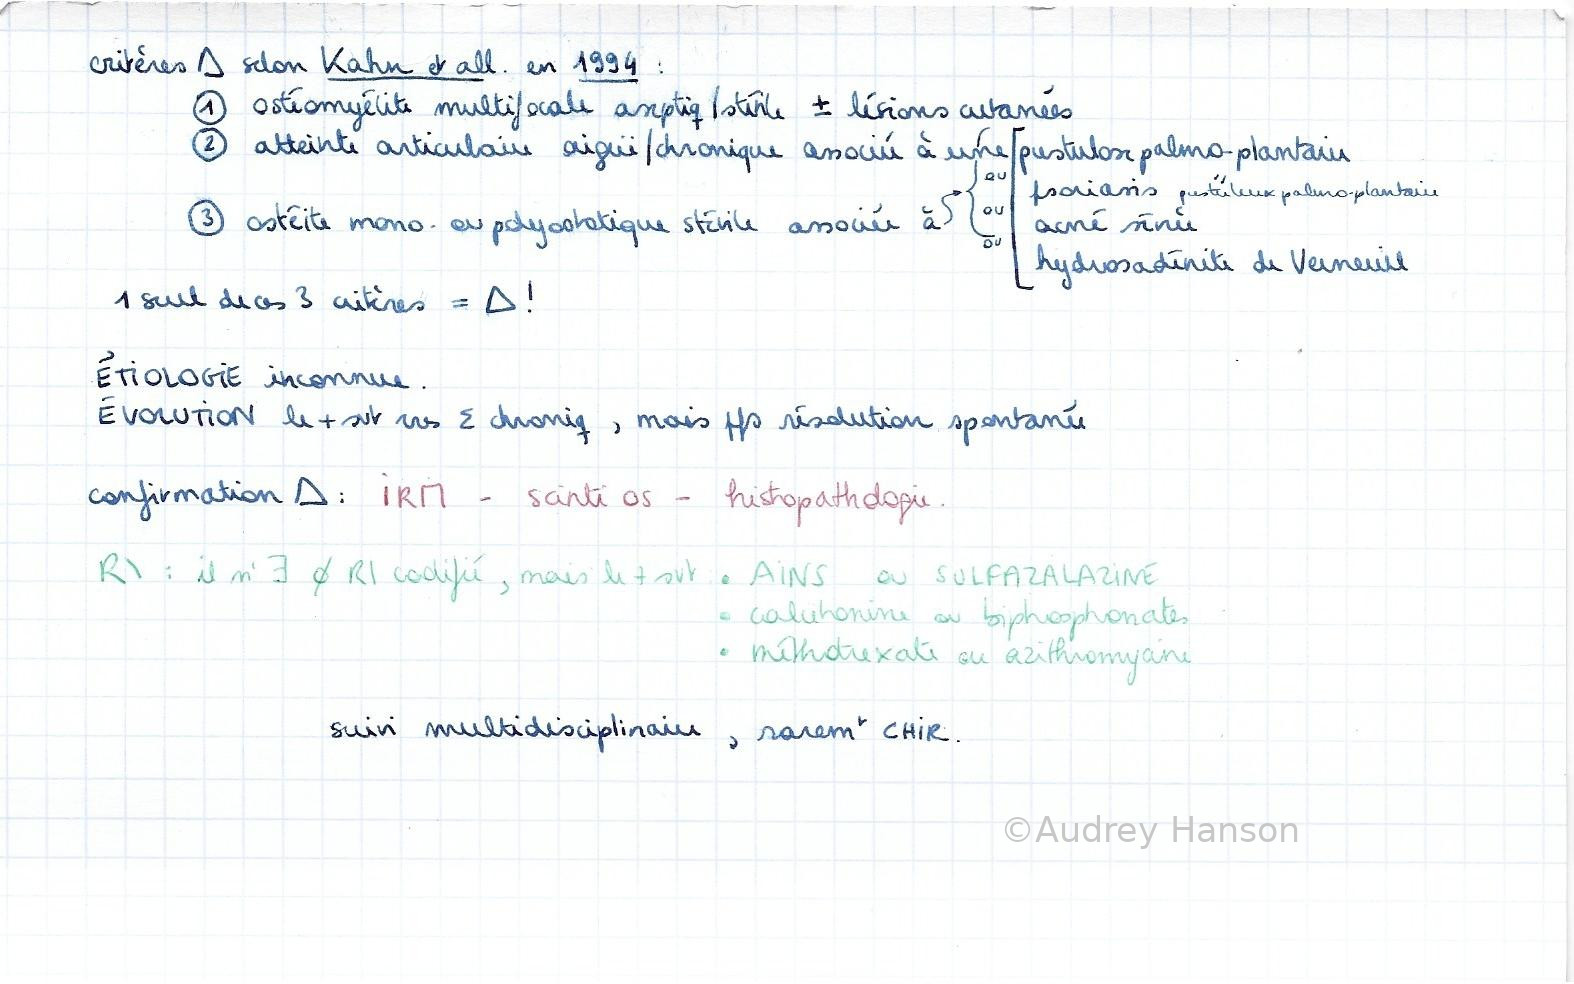 critères Δ selon Kahn et all. en 1994 :
① ostéomyélite multifocale aseptiq/stérile ± lésions cutanées
② atteinte articulaire aiguë/chronique associée à une pustulose palmo-plantaire
ou psoriasis pustuleux palmo-plantaire
③ ostéite mono- ou polyostotique stérile associée à ou acné sévère
ou hydrosadénite de Verneuil
1 seul de ces 3 critères = Δ !
ÉTIOLOGIE inconnue.
ÉVOLUTION le + svt vers Σ chroniq, mais pfs résolution spontanée
confirmation Δ : IRM - scinti os - histopathologie.
R\ : il n'∃ ∅ R\ codifié, mais le + svt • AINS ou SULFAZALAZINE
• calcitonine ou biphosphonates
• méthotrexate ou azithromycine
suivi multidisciplinaire, raremt CHIR.
©Audrey Hanson